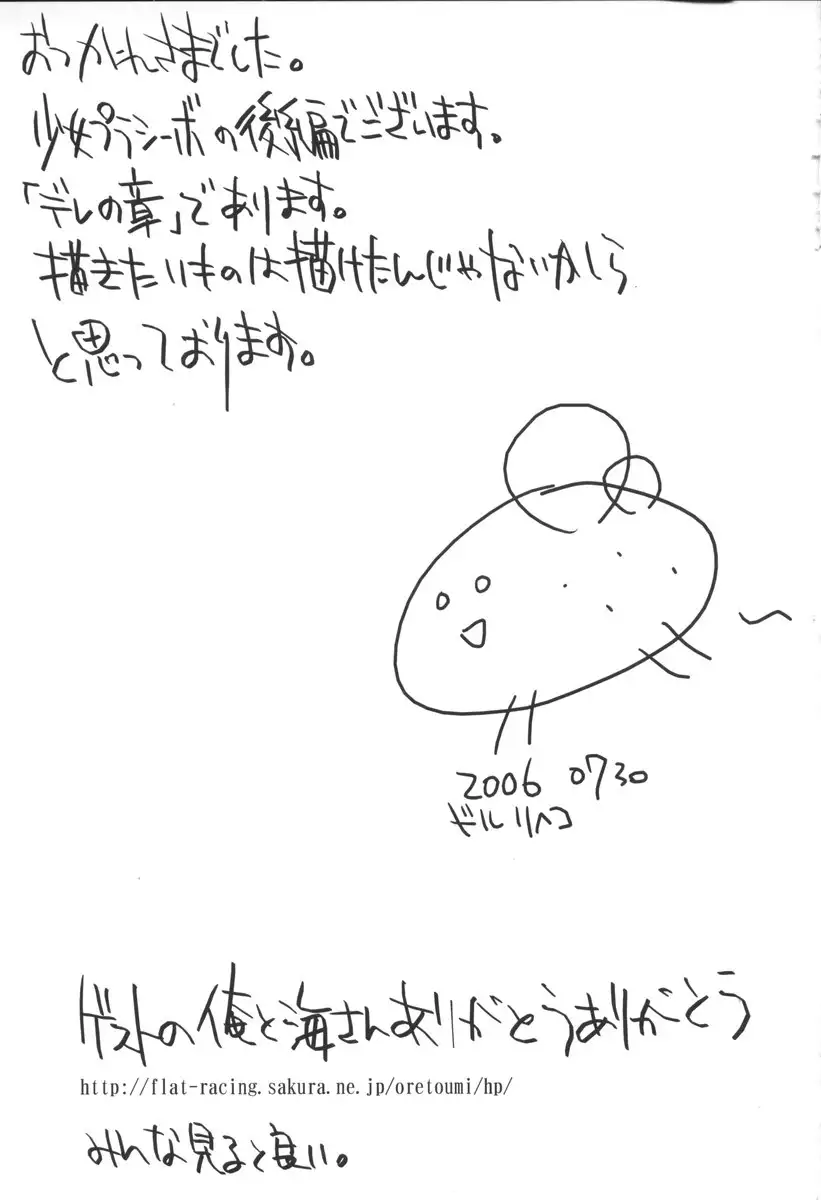 おつかれさまでした。
少女プラシーボの後編でございます。
「デレの章」であります。
描きたいものは描けたんじゃないかしら
と思っております。
2006 0730
ビルリハコ
ゲストの俺と海さんありがとうありがとう
http://flat-racing.sakura.ne.jp/oretoumi/hp/
みんな見ると良い。